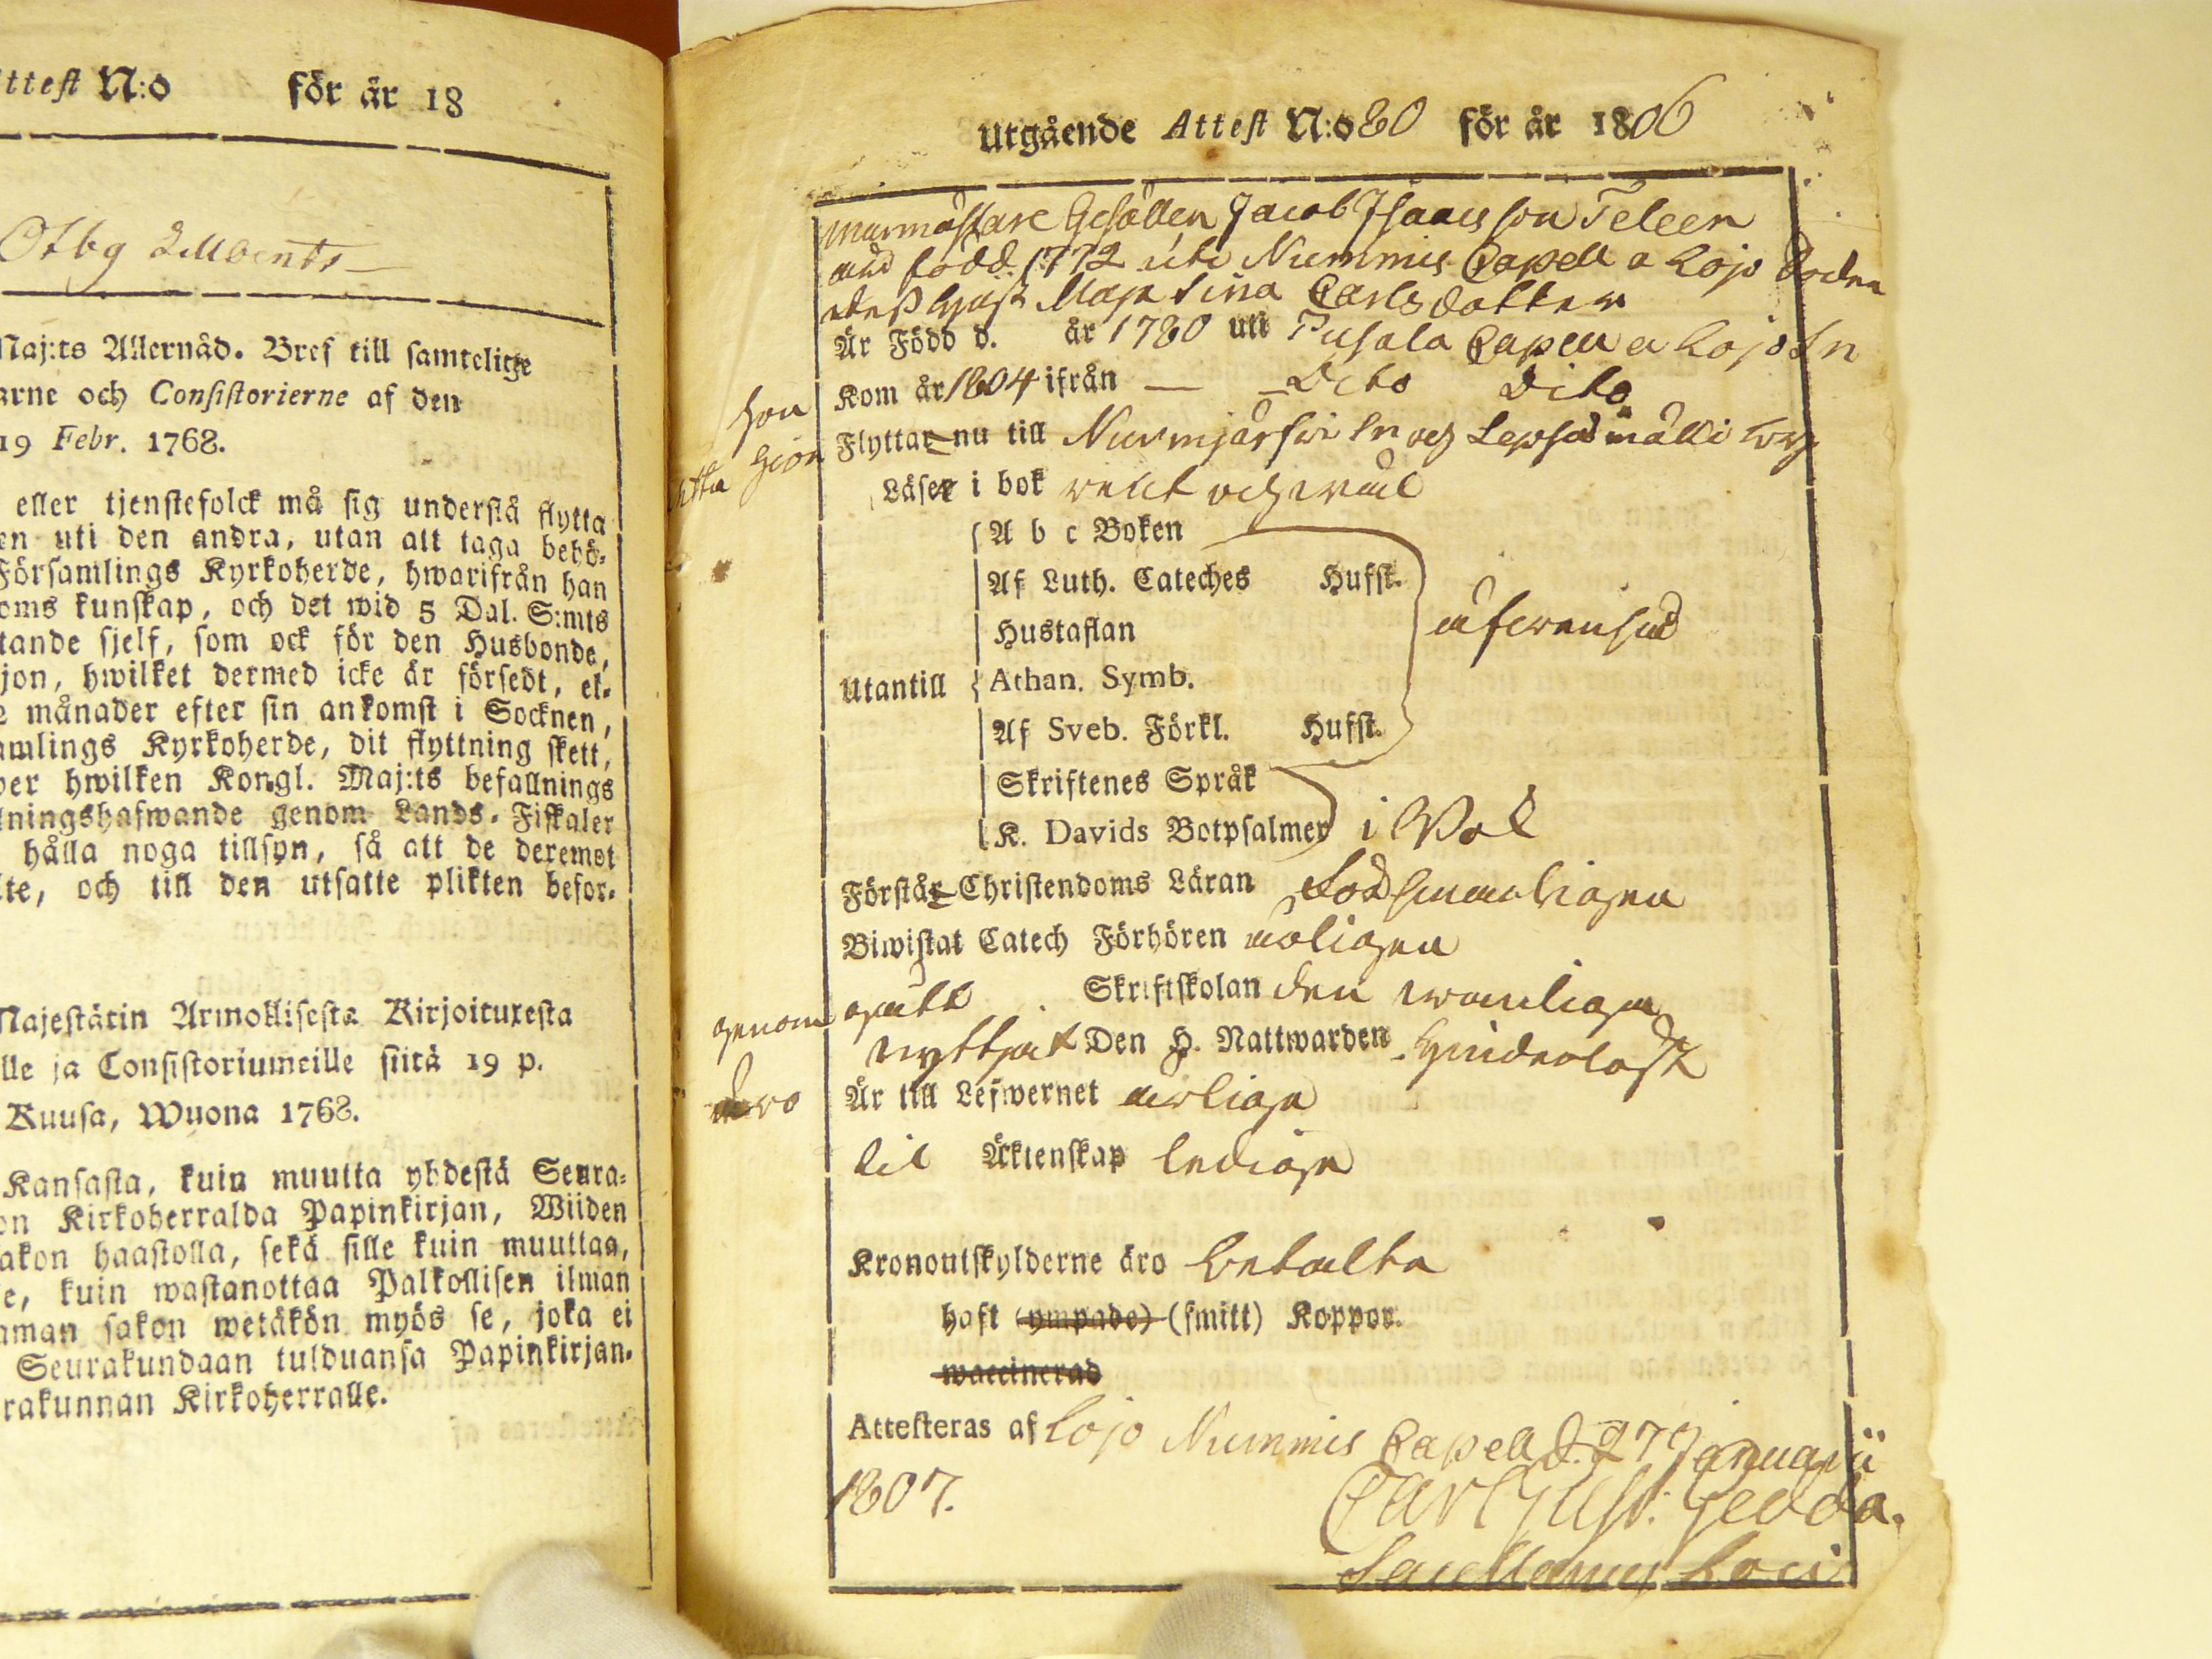 ttest N:o för år 18
Otbg
Maj:ts Allernåd. Bref till samtelige
arne och Consistorierne af den
19 Febr. 1768.
eller tjenstefolck må sig understå flytta
en uti den andra, utan att taga behö-
Församlings Kyrkoherde, hwarifrån han
oms kunskap, och det wid 5 Dal. S:mts
tande sjelf, som ock för den Husbonde,
jon, hwilket dermed icke är försedt, el-
2 månader efter sin ankomst i Socknen,
amlings Kyrkoherde, dit flyttning skett,
wer hwilken Kongl. Maj:ts befallnings
lningshafwande genom Lands-Fiskaler
hålla noga tillsyn, så att de deremot
lte, och till den utsatte plikten befor-
Majestätin Armollisesta Kirjoituxesta
lle ja Consistoriumeille siitä 19 p.
Kuusa, Wuona 1768.
Kansasta, kuin muutta yhdestä Seura-
on Kirkoherralda Papinkirjan, Wiiden
akon haastolla, sekä sille kuin muuttaa,
e, kuin wastanottaa Palkollisen ilman
aman sakon wetäkön myös se, joka ei
Seurakundaan tulduansa Papinkirjan-
rakunnan Kirkoherralle.
Utgående Attest N:o 80 för år 1806
Murmästare Gesällen Jacob Isaacsson Teleen
född 1772 uti Nummis Capell a Lojo Socken
dess Hust Maja Stina Carlsdotter
Är Född d. år 1780 uti Pusala Capell a Lojo Sn
Kom år 1804 ifrån — Dito Dito
hon
Flyttar nu till Nurmjärfwi Sn och Lepsämä
Läser i bok rent och wäl
A b c Boken
Af Luth. Cateches Hufst.
Hustaflan
Utantill Athan. Symb.
Af Sveb. Förkl. Hufst.
Skriftenes Språk
K. Davids Botpsalmer
Förstår Christendoms Läran
Biwistat Catech Förhören
genom gådt Skriftskolan den wanliga
nyttjat Den H. Nattwarden hinderlöst
äro Är till Lefwernet ärliga
til Äktenskap lediga
Kronoutskylderne äro betalta
haft (ympade) (smitt) Koppor.
waccinerad
Attesteras af Lojo Nummis Capell d. 27 Januarii
1807. Carl Gust: Gedda.
Sacellanus Loci